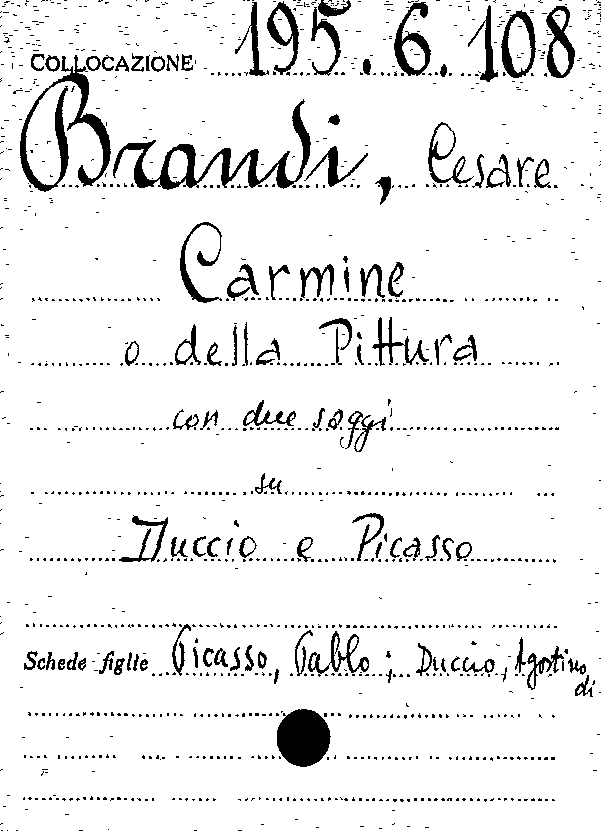 COLLOCAZIONE 195.6.108
Brandi, Cesare
Carmine
o della Pittura
con due saggi
su
Duccio e Picasso
Schede figlie Picasso, Pablo; Duccio, Agostino
di